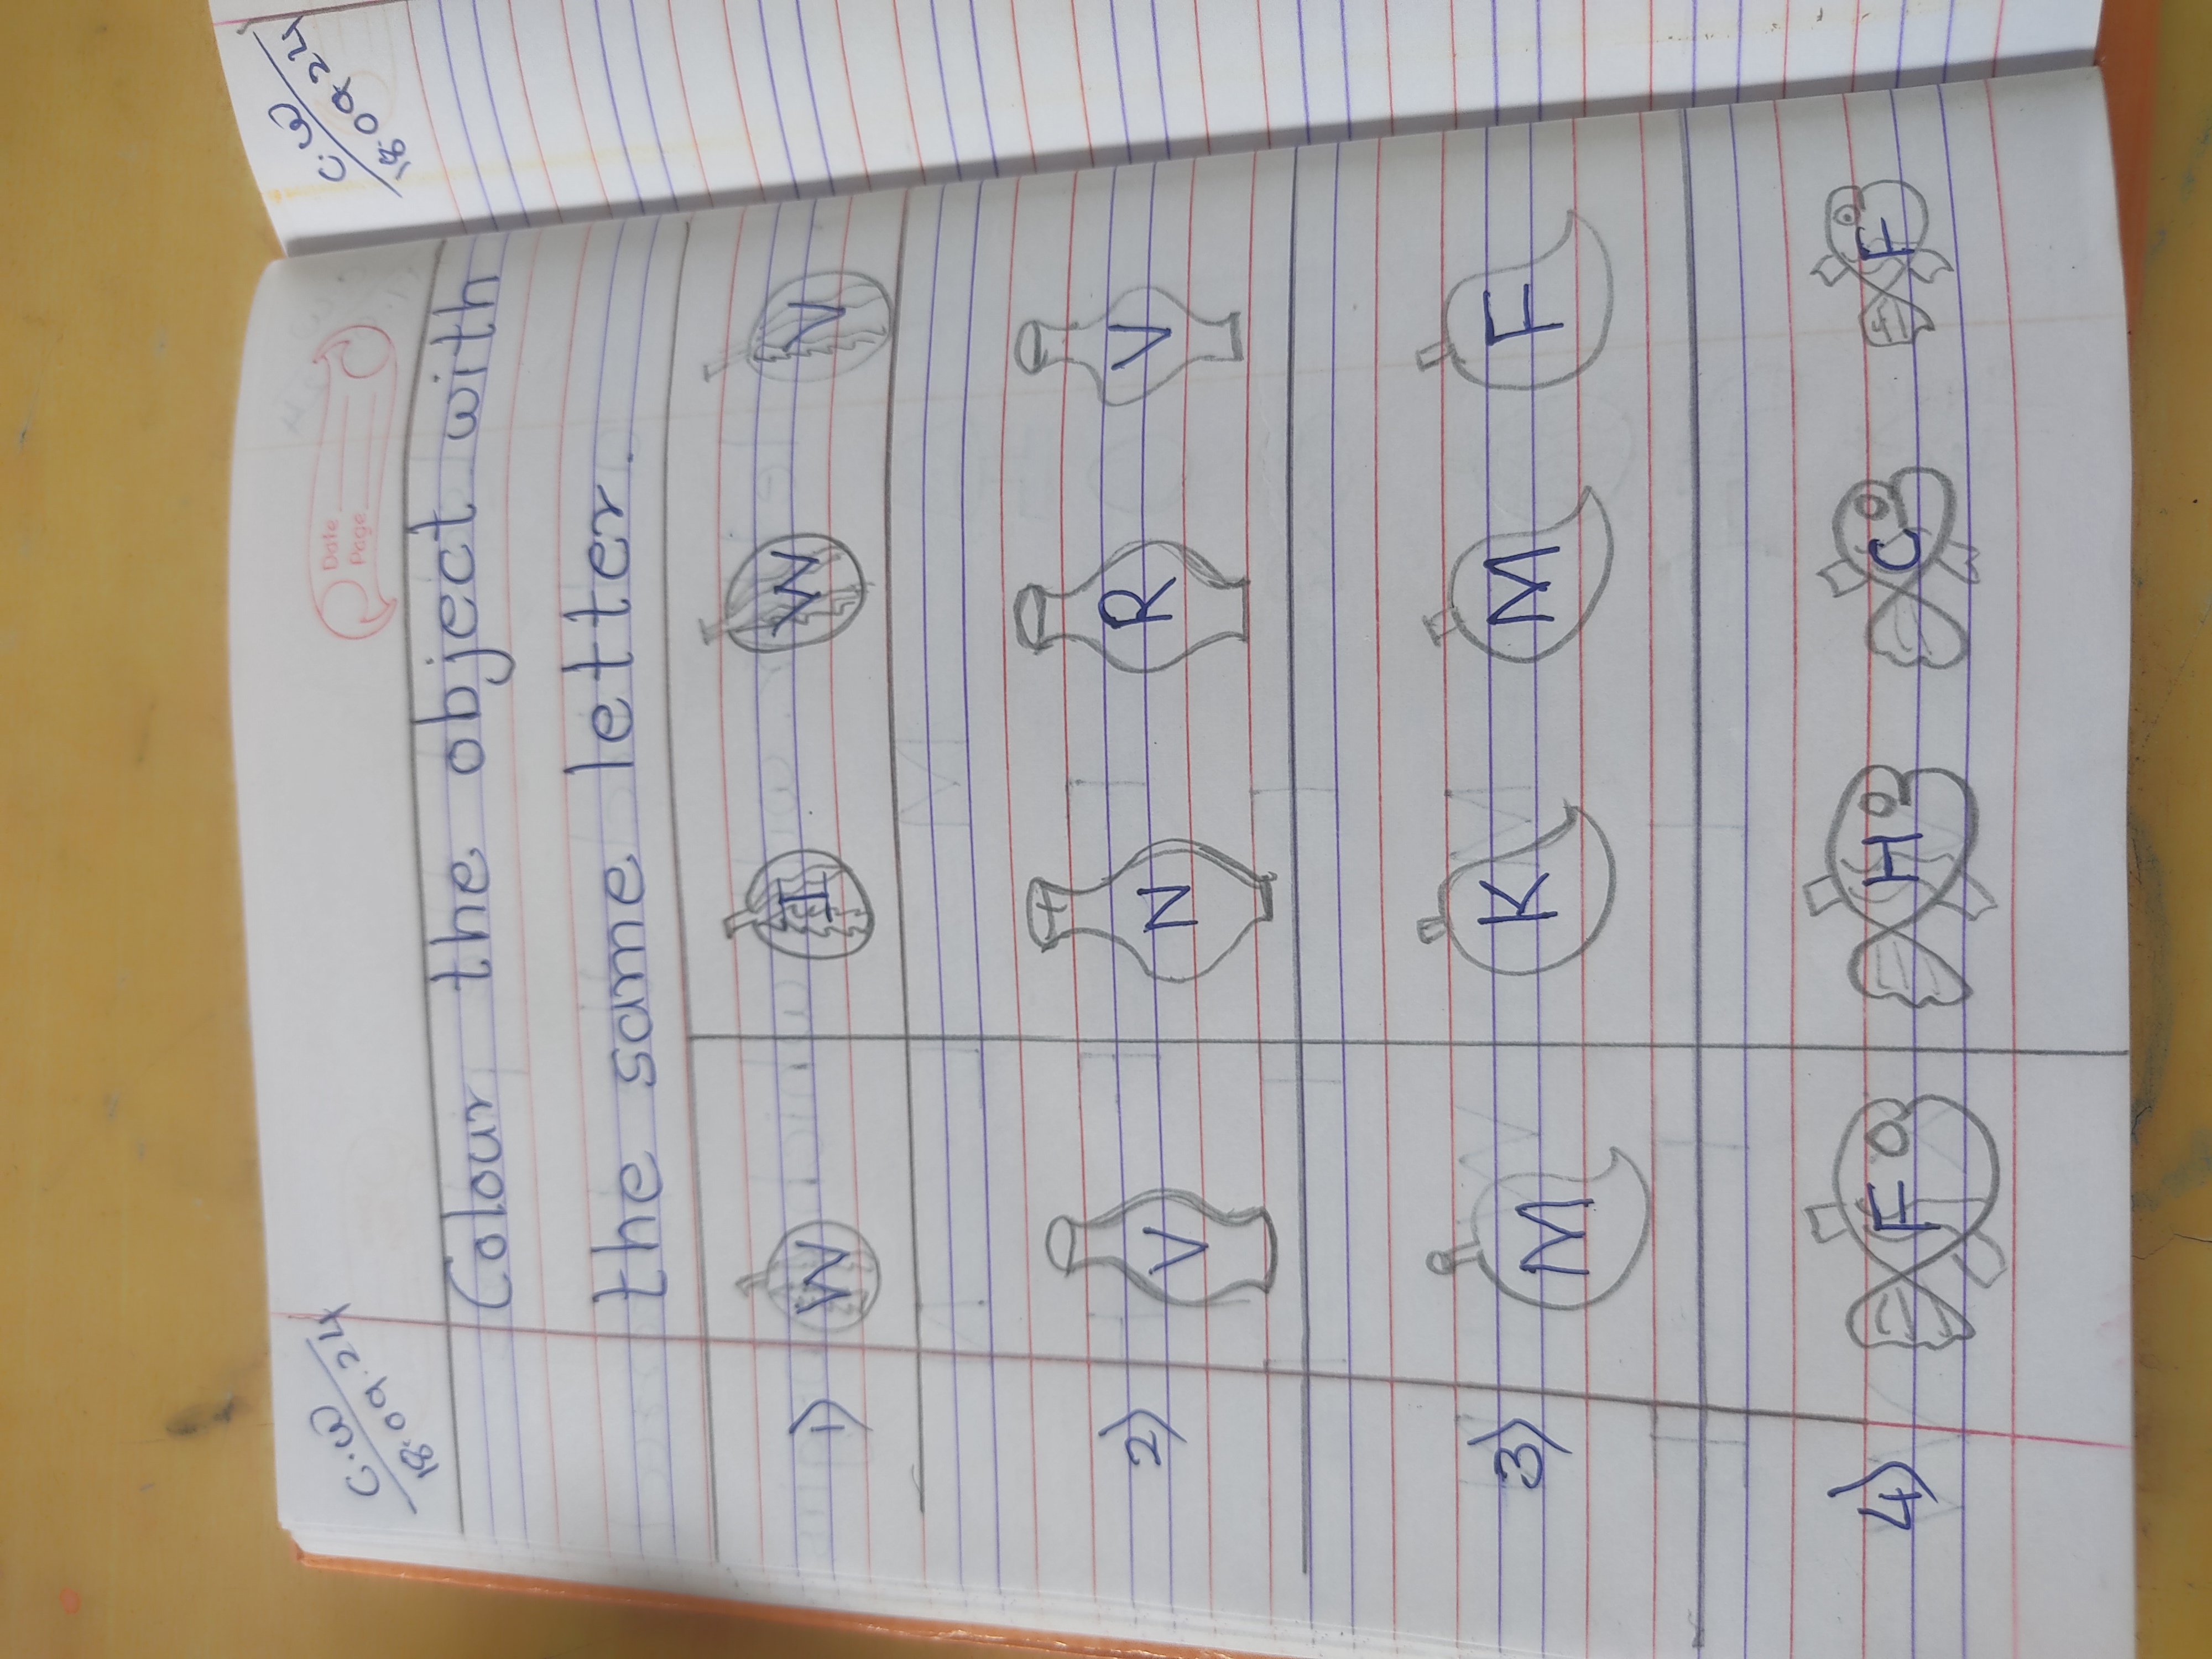 C.W
18.09.24
Date
Page
Colour the object with
the same letter.
1) W I W V
2) V N R V
3) M K M F
4) F H C F
C.W
18.09.24